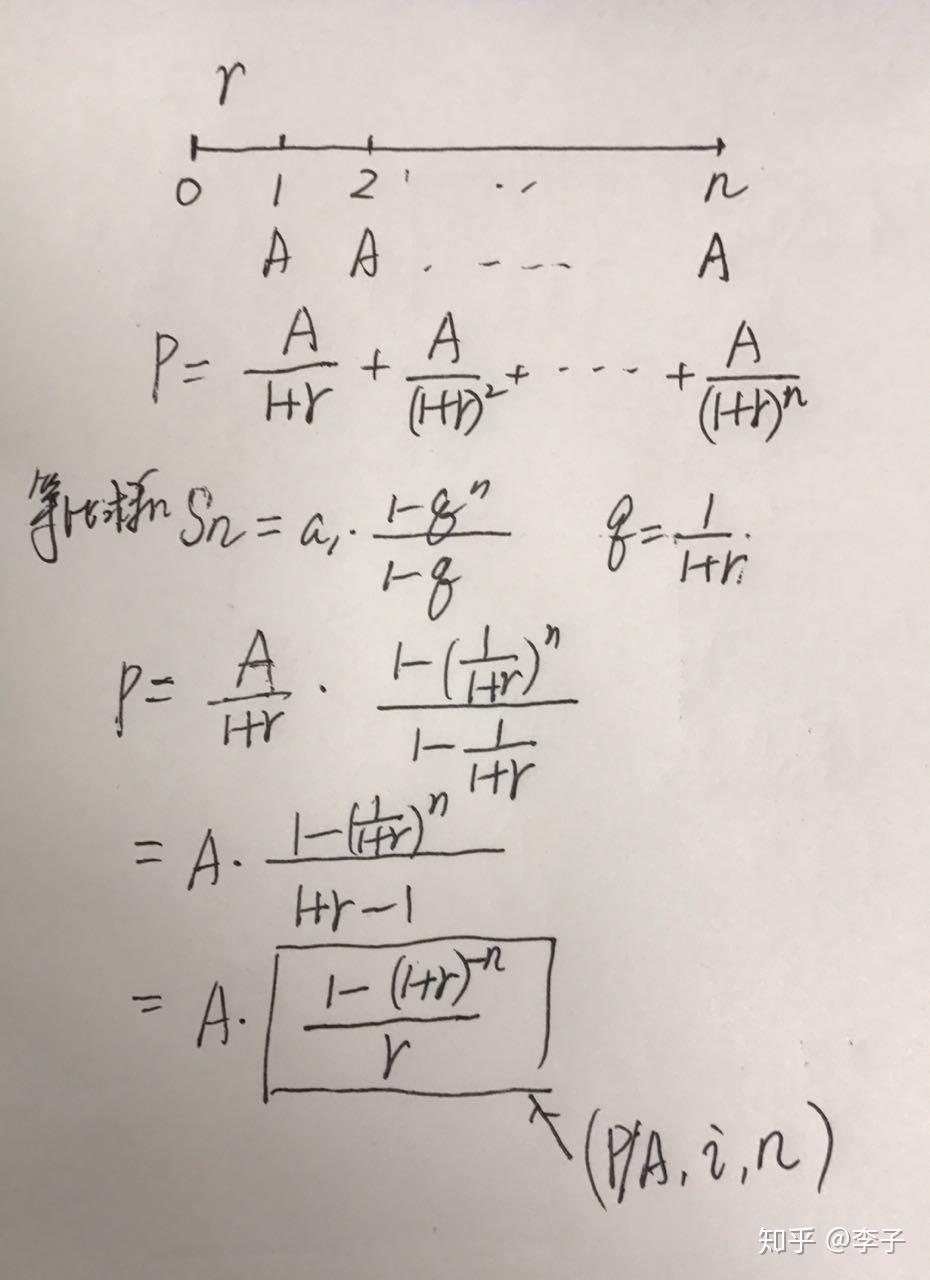 r
0 1 2 ' .. n
A A . - --- A
P = A/(1+r) + A/(1+r)² + --- + A/(1+r)ⁿ
等比求和 Sn = a₁ · (1-qⁿ)/(1-q) q = 1/(1+r)
P = A/(1+r) · (1-(1/(1+r))ⁿ)/(1-1/(1+r))
= A · (1-(1/(1+r))ⁿ)/(1+r-1)
= A · (1-(1+r)⁻ⁿ)/r
(P/A, i, n)
知乎 @李子